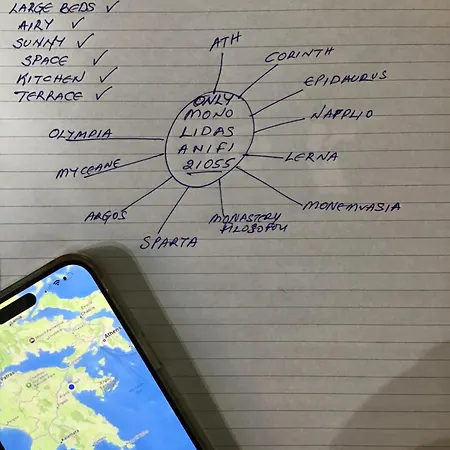 LARGE BEDS ✓
AIRY ✓
SUNNY ✓
SPACE ✓
KITCHEN ✓
TERRACE ✓
ATH
CORINTH
EPIDAURUS
NAFPLIO
LERNA
MONEMVASIA
MONASTERY
FILOSOFOU
SPARTA
ARGOS
MYCEANE
OLYMPIA
ONLY
MONO
LIDAS
ANIFI
21055
Athens
Patras